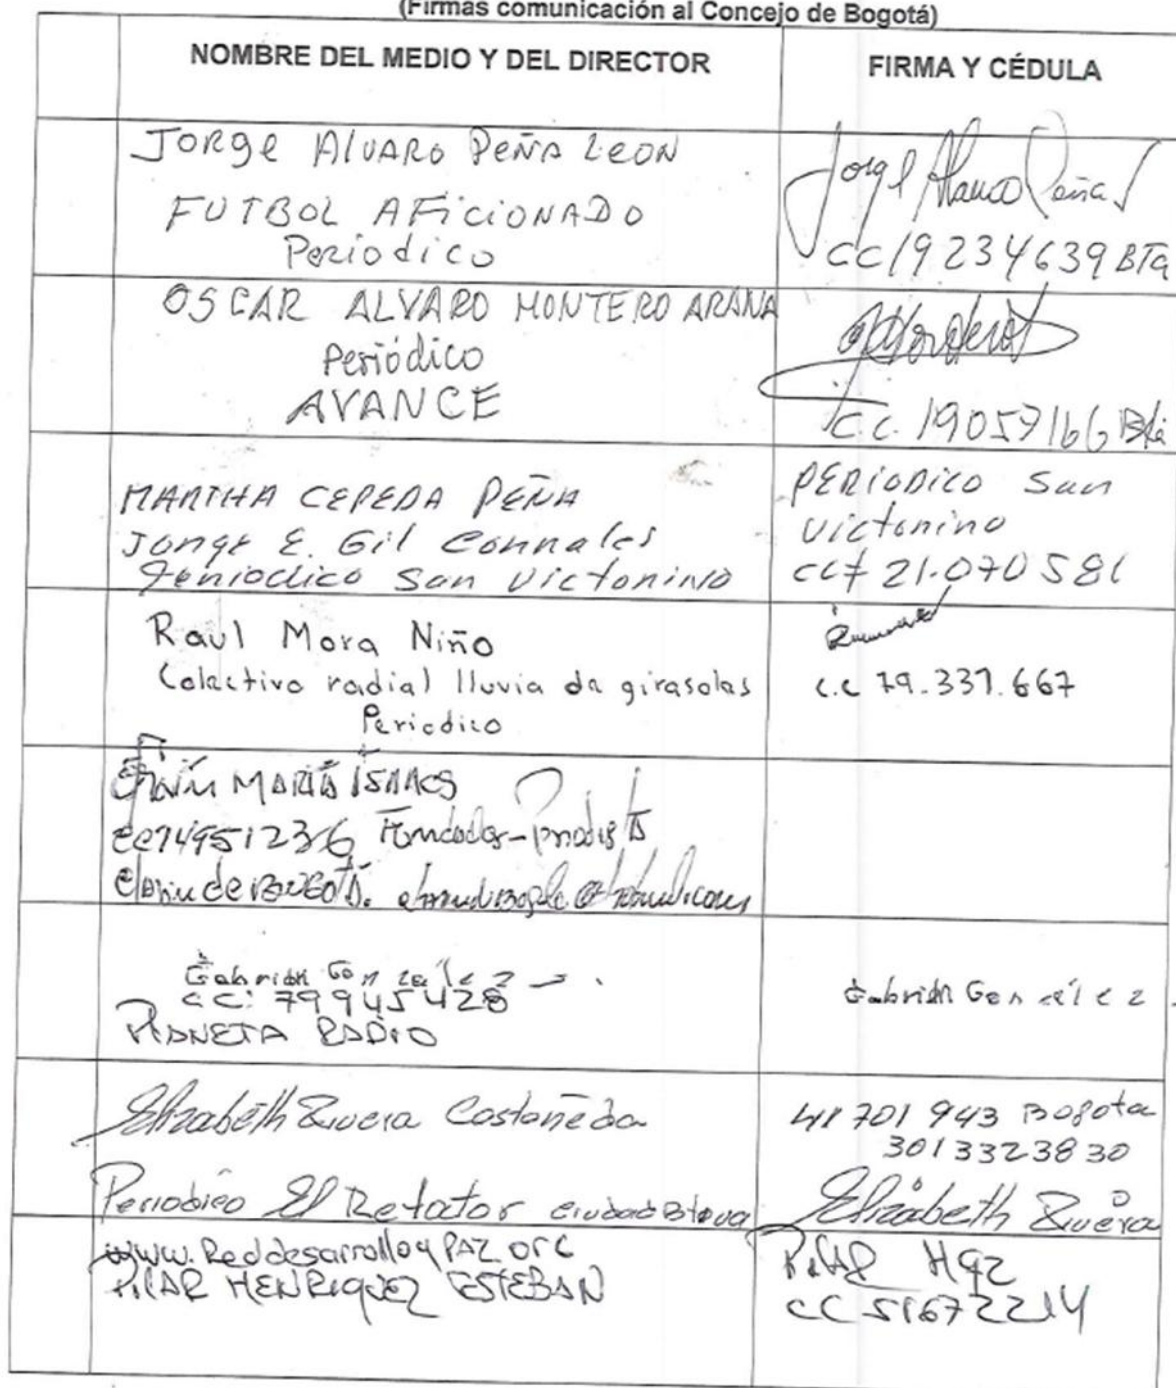 (Firmas comunicación al Concejo de Bogotá)
NOMBRE DEL MEDIO Y DEL DIRECTOR
FIRMA Y CÉDULA
JORge AlVARO PeÑA LeON
FUTBOL AFiCIONADO
Periodico
Jorge Alvaro Peña
CC 19234639 BTa
OSCAR ALVARO MONTERO ARANA
Periódico
AVANCE
C.C. 19057166 Bta
MARTHA CEPEDA PEÑA
Jorge E. Gil Corrales
Periodico San Victorino
PERIODICO San
Victorino
cc# 21.070581
Raul Mora Niño
Colectivo radial lluvia de girasoles
Periodico
c.c 79.337.667
MARIA ISAACS
Fundador-
Gabriel González
CC: 79945428
PLANETA RADIO
Gabriel González
Elizabeth Rivera Castañeda
Periodico El Retator ciudad Bolivar
41 701 943 Bogota
3013323830
Elizabeth Rivera
www.ReddesarrolloyPAZ ORG
PILAR HENRIQUEZ ESTEBAN
PILAR HQZ
CC 51672214